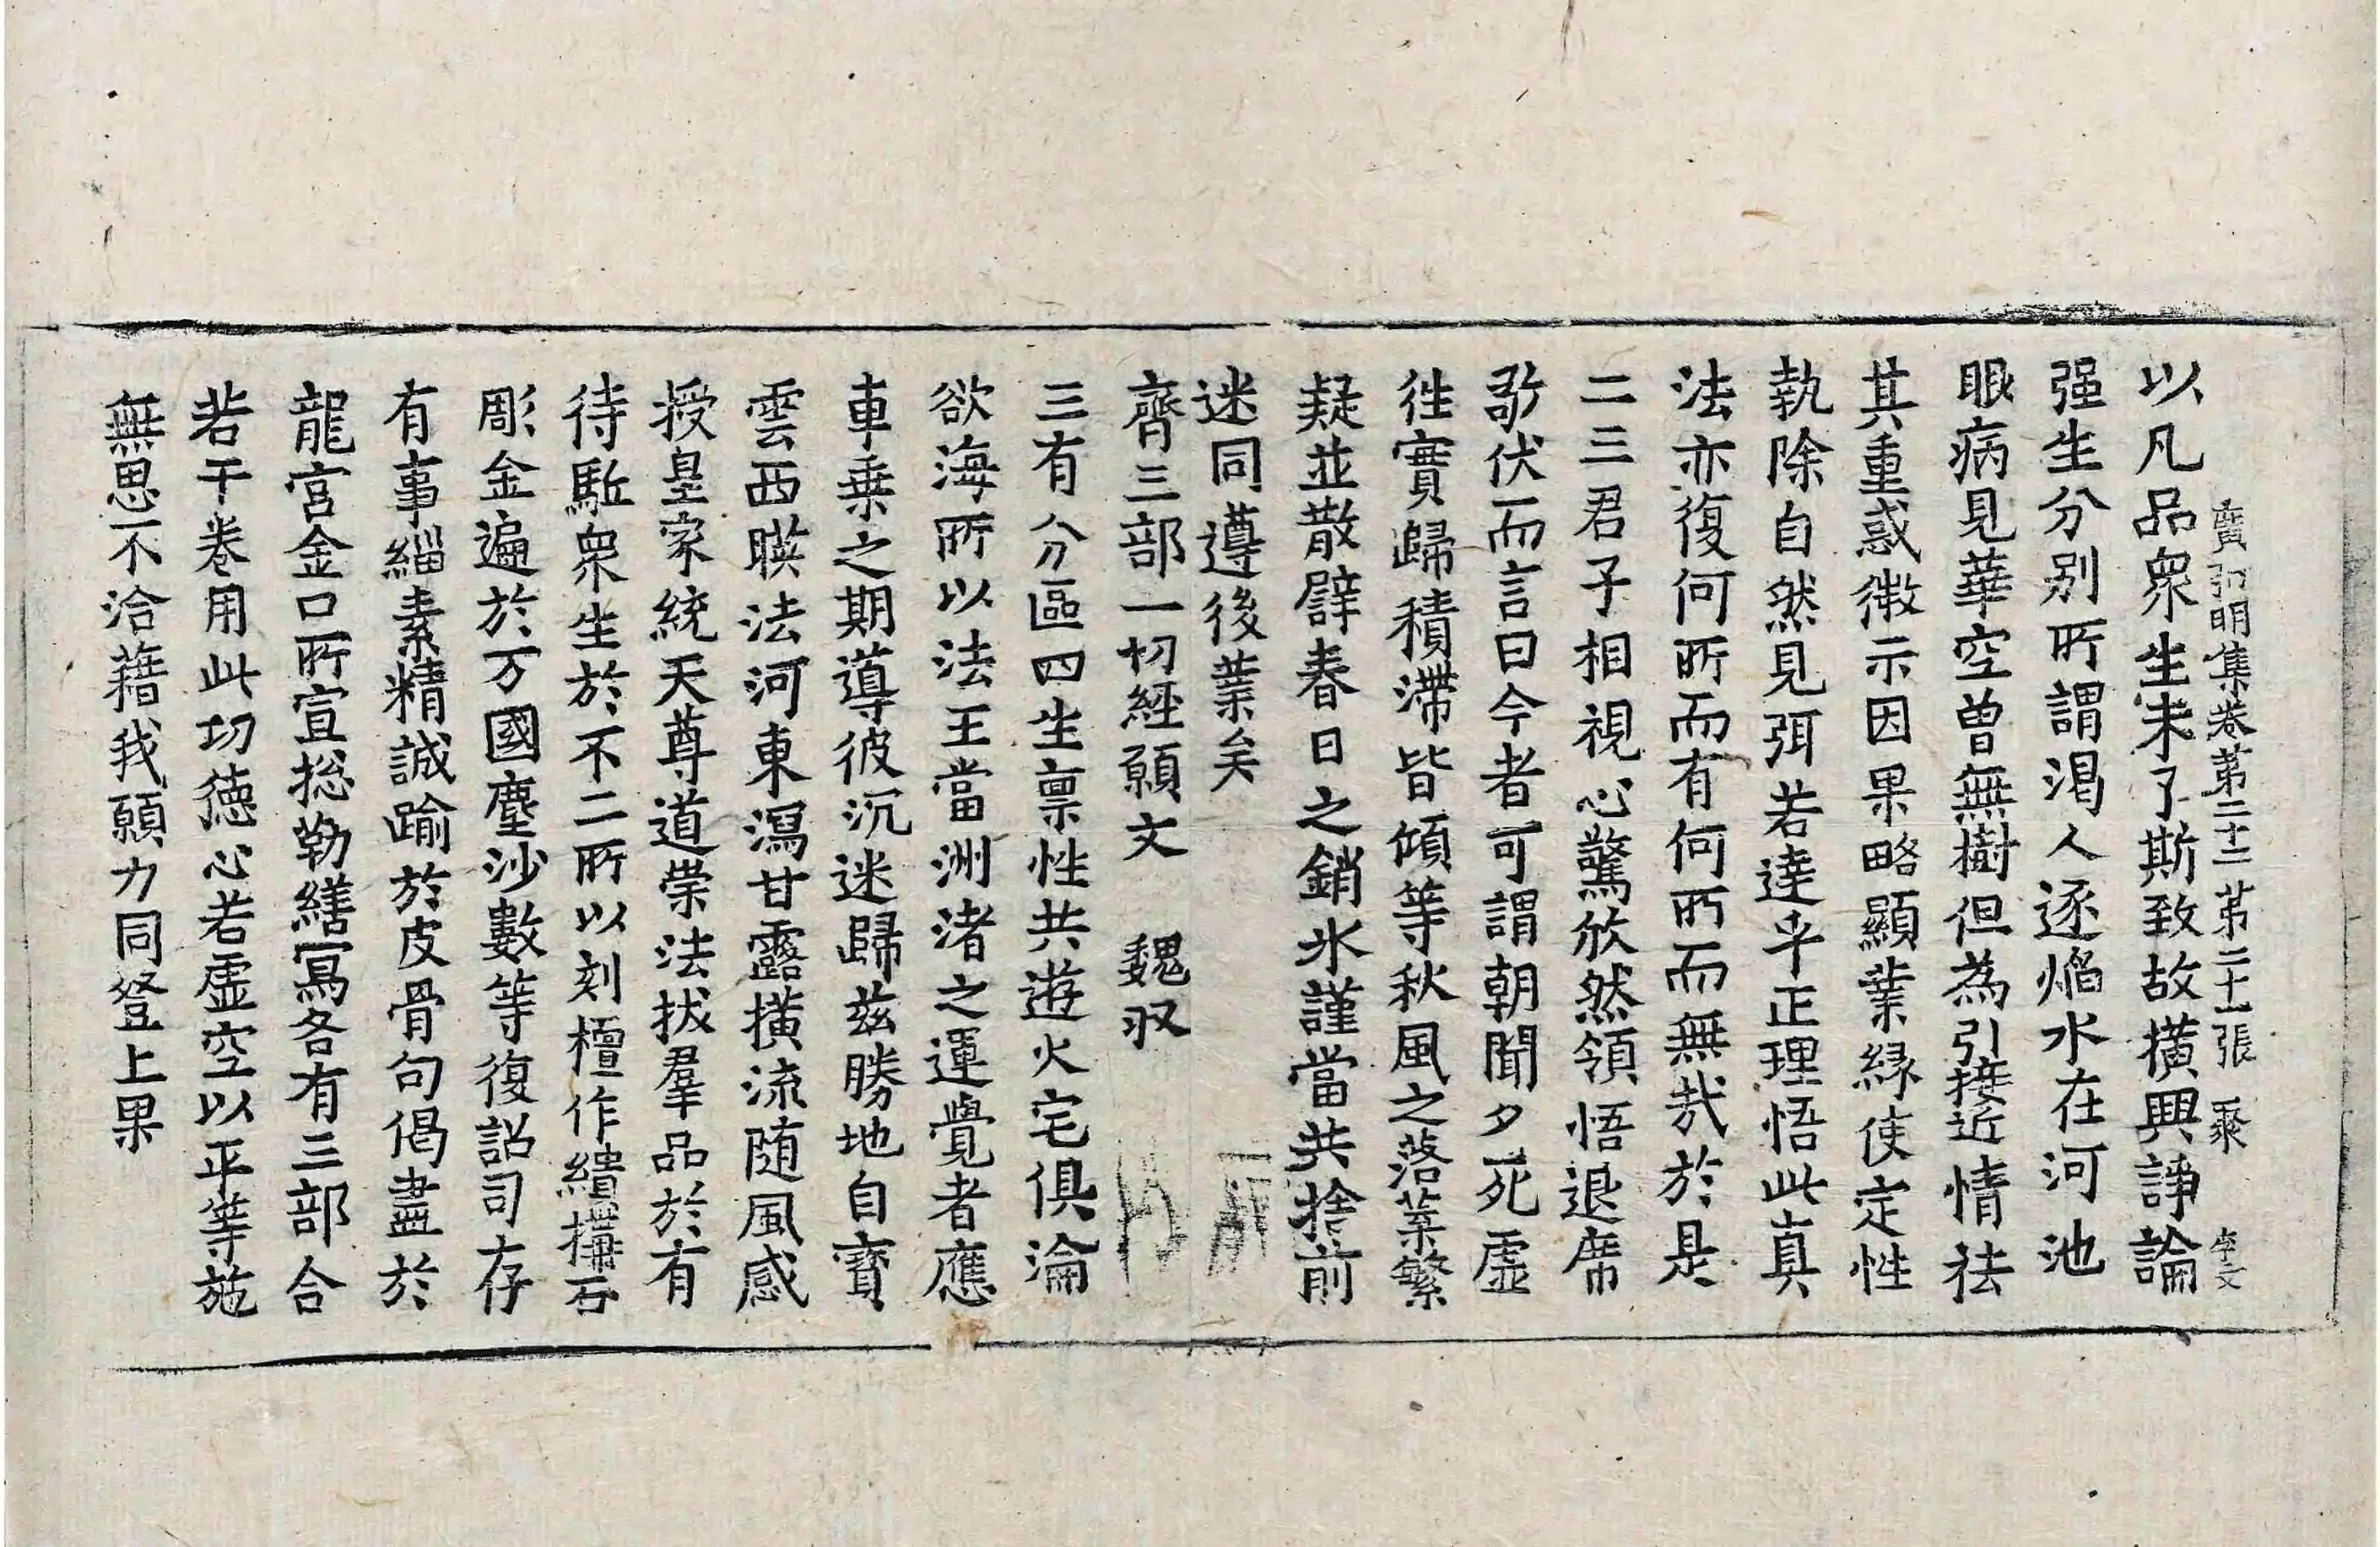 廣弘明集卷第二十二 第二十一張 聚
以凡品衆生未了斯致故撗興諍論
强生分别所謂渇人逐焰水在河池
眼病見華空曾無樹但為引接近情祛
其重惑微示因果略顯業緣使定性
執除自然見弭若達乎正理悟此真
法亦復何所而有何所而無哉於是
二三君子相視心驚攸然領悟退席
敬伏而言曰今者可謂朝聞夕死虛
往實歸積滯皆傾等秋風之落葉繁
疑並散譬春日之銷氷謹當共捨前
迷同遵後業矣
齊三部一切經願文 魏収
三有分區四生禀性共遊火宅俱淪
欲海所以法王當洲渚之運覺者應
車乗之期導彼沉迷歸兹勝地自寶
雲西暎法河東瀉甘露撗流随風感
授皇家統天尊道崇法拔羣品於有
待駈衆生於不二所以刻檀作繢搆石
彫金遍於万國塵沙數等復詔司存
有事緇素精誠踰於皮骨句偈盡於
龍宮金口所宣揔勒繕寫各有三部合
若干卷用此功德心若虛空以平等施
無思不洽藉我願力同登上果